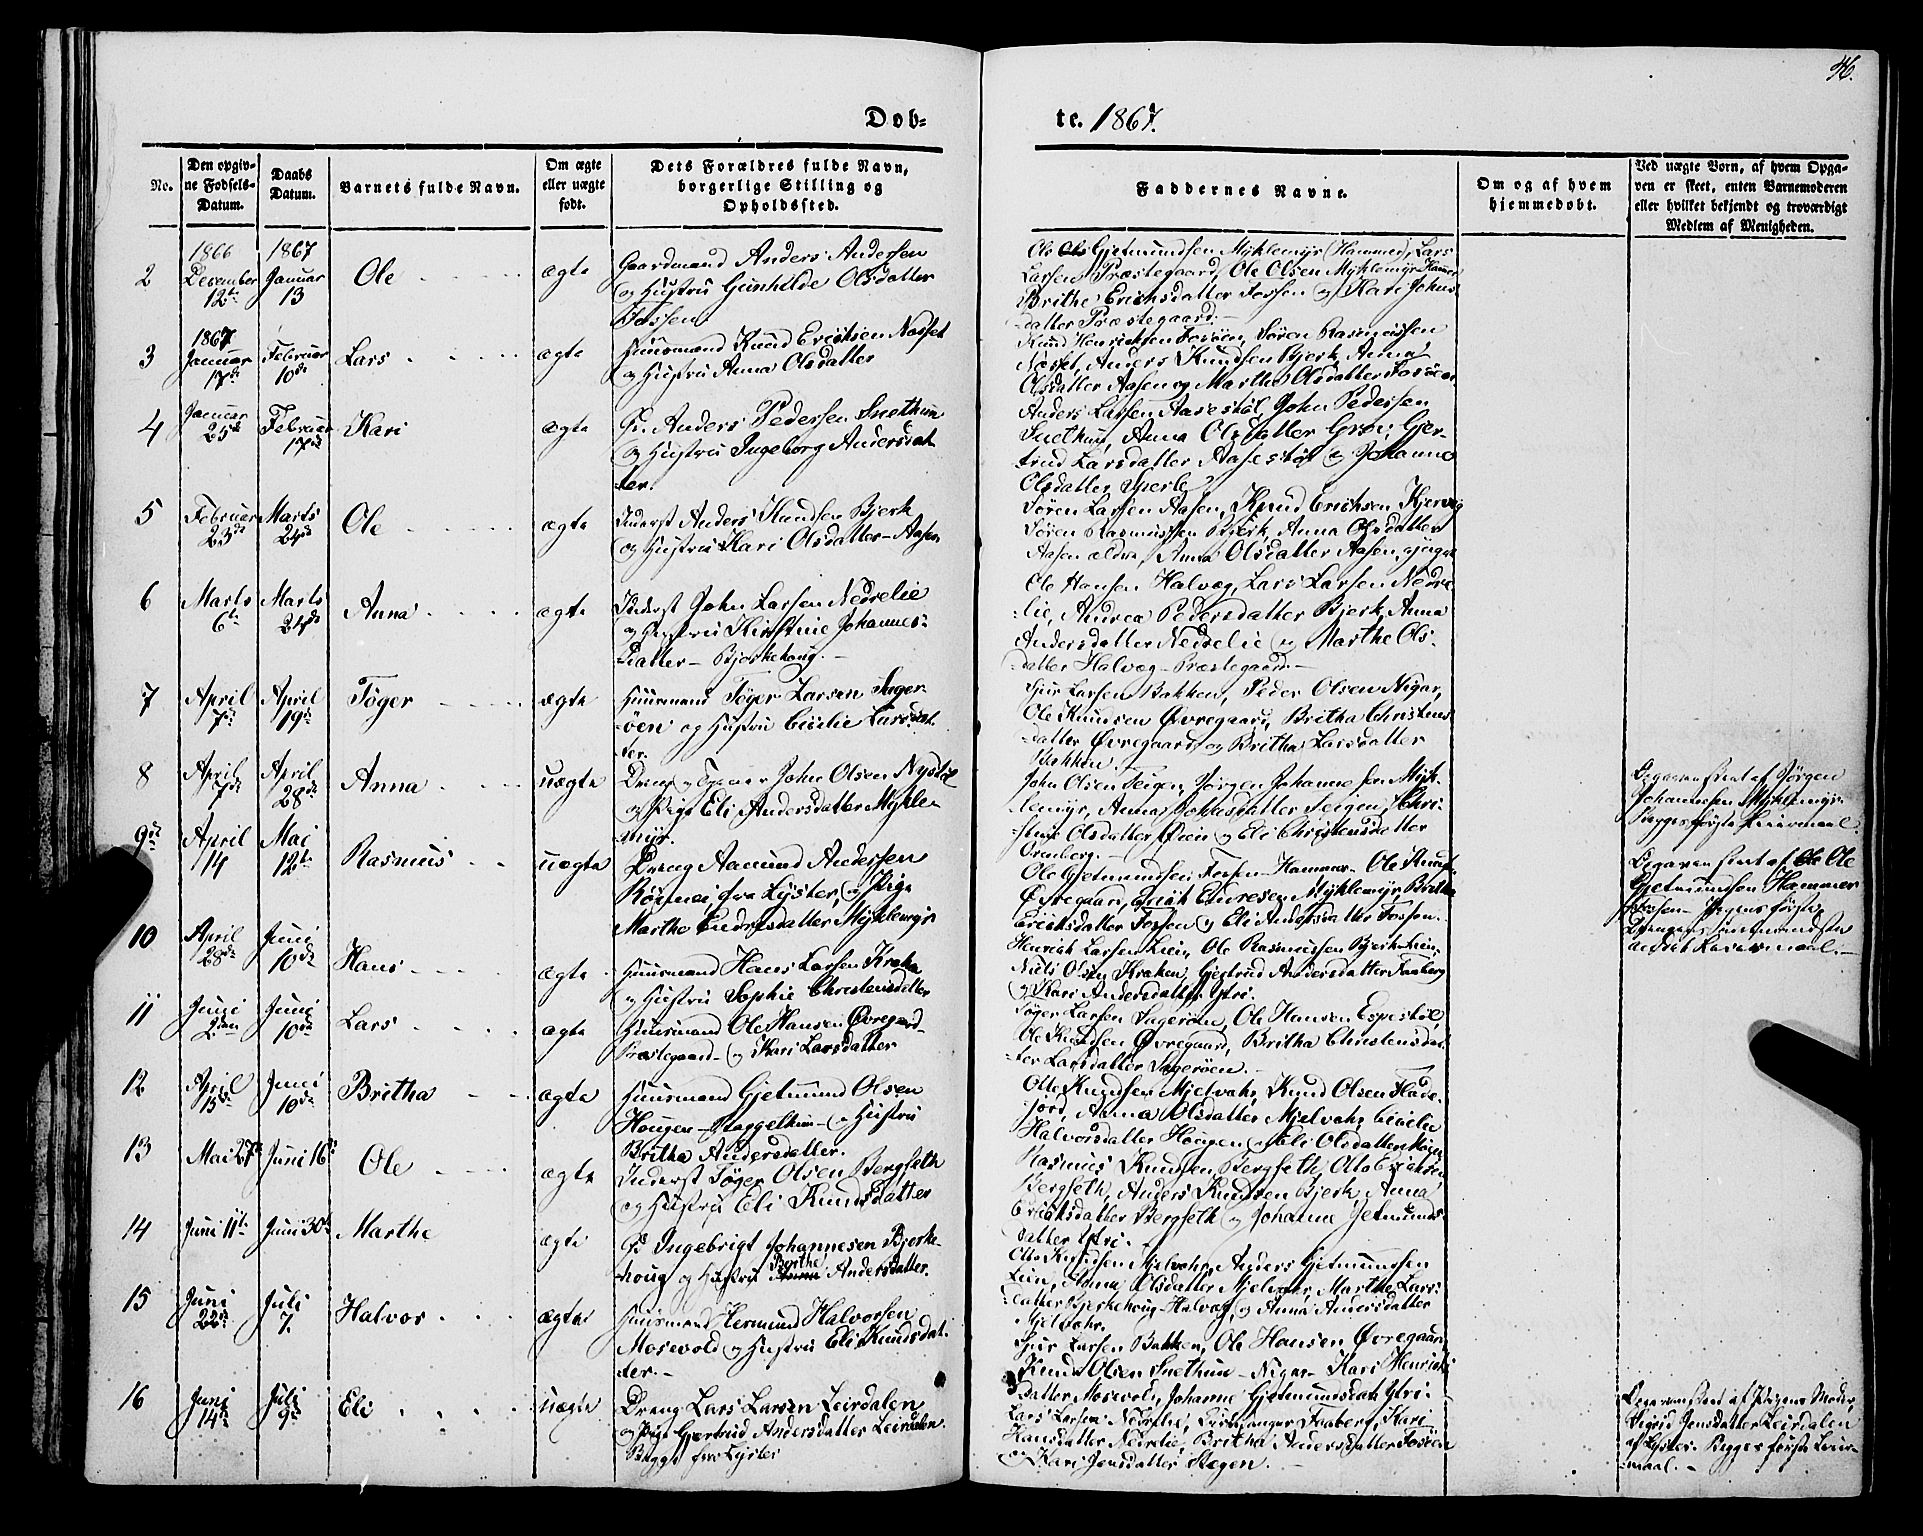 46.
Døb-
te. 1867.
No.
Den opgiv-
ne Fødsels-
Datum.
Daabs
Datum.
Barnets fulde Navn.
Om ægte
eller uægte
født.
Dets Forældres fulde Navn,
borgerlige Stilling og
Opholdssted.
Faddernes Navne.
Om og af hvem
hjemmedøbt.
Ved uægte Børn, af hvem Opga-
ven er skeet, enten Barnemoderen
eller hvilket bekjendt og troværdigt
Medlem af Menigheden.
2
1866
December
12te
1867
Januar
13
Ole
ægte
Gaardmand Anders Andersen
og Hustru Gunhilde Olsdatter
Fossen
Ole Gjetmundsen Myklemyr (Hammer), Lars
Larsen Præstegaard, Ole Olsen Myklemyr Hammer
Brithe Erichsdatter Fossen og Kari Johns
datter Præstegaard.
3
1867
Januar
17de
Februar
10de
Lars
ægte
Huusmand Knud Erichsen Næsset
og Hustru Anna Olsdatter
Knud Henrichsen Fosøen, Søren Rasmussen
Næsset, Anders Knudsen Bjerk, Anna
Olsdatter Aasen og Marthe Olsdatter Fosøen
4
Januar
25de
Februar
17de
Kari
ægte
G. Anders Pedersen Snethun
og Hustru Ingeborg Andersdat
ter.
Anders Larsen Aasestøl, John Pedersen
Snethun, Anna Olsdatter Grøn, Gjer-
trud Larsdatter Aasestøl og Johanne
Olsdatter Sperle
5
Februar
23de
Marts
24de
Ole
ægte
Inderst Anders Knudsen Bjerk
og Hustru Kari Olsdatter - Aasen
Søren Larsen Aasen, Knud Erichsen Kjervig
Søren Rasmussen Bjerk, Anna Olsdatter
Aasen ældre, Anna Olsdatter Aasen, yngre
6
Marts
6te
Marts
24de
Anna
ægte
Inderst John Larsen Nedrelie
og Hustru Kirstine Johannes-
datter - Bjerkehoug.
Ole Hansen Halvæg, Lars Larsen Nedre
lie, Andrea Pedersdatter Bjerk, Anna
Andersdatter Nedrelie og Marthe Ols-
datter Halvæg - Præstegaard.
7
April
7de
April
19de
Tøger
ægte
Huusmand Tøger Larsen Sager-
øen og Hustru Cicilie Larsdat
ter.
Sjur Larsen Bakken, Peder Olsen Nigar,
Ole Knudsen Øvregaard, Britha Christens
datter Øvregaard og Britha Larsdatter
Bakken.
8
April
7de
April
28de
Anna
uægte
John Olsen Nystøl
og Pige Eli Andersdatter Mykle-
myr.
John Olsen Teigen, Jørgen Johannesen Myk-
lemyr, Anna Johnsdatter Teigen, Chri-
stine Olsdatter og Eli Christensdatter
Opgaven sket af Jørgen
Johannesen Myklemyr.
Begges første Leiermaal.
9de
April
14
Mai
12te
Rasmus
uægte
Dreng Aamund Andersen
fra Lyster, og Pige
Marthe Endresdatter Myklemyr
Ole Gjetmundsen Fossen Hammer, Ole Knuds.
Øvregaard, Erich Endresen Myklemyr, Britha
Erichsdatter Fossen og Eli Andersdatter Fossen.
Opgaven sket af Ole
Gjetmundsen Hammer
Fossen - Pigens første,
Leiermaal.
10
April
28de
Juni
10de
Hans
ægte
Huusmand Hans Larsen Kraka
og Hustru Sophie Christensdatter
Henrich Larsen Lein, Ole Rasmussen Bjerk
Niels Olsen Kraken, Gjertrud Andersdatter Faaberg
og Kari Andersdatter Ytri.
11
Juni
2den
Juni
10de
Lars
ægte
Huusmand Ole Hansen Øvregaard
Præstegaard - og Kari Larsdatter
Tøger Larsen Sagerøen, Ole Hansen Espestøl,
Ole Knudsen Øvregaard, Britha Christensdat
ter Larsdatter Sagerøen.
12
April
15de
Juni
10de
Britha
ægte
Huusmand Gjetmund Olsen
Hougen - og Hustru
Britha Andersdatter.
Otte Knudsen Mjelvahr, Knud Olsen Flade-
jord, Anna Olsdatter Mjelvahr, Cicilie
Halvorsdatter Hougen og Eli Olsdatter
13
Mai 27de
Juni 16de
Ole
ægte
Inderst Tøger Olsen Bergseth
og Hustru Eli Knudsdatter
Rasmus Knudsen Bergseth, Otto Erichsen
Bergseth, Anders Knudsen Bjerk, Anna
Erichsdatter Bergseth og Johanna Jetmunds-
datter Ytri.
14
Juni 11te
Juni 30te
Marthe
ægte
G. Ingebrigt Johannesen Bjerke-
houg og Hustru Brithe Andersdatter.
Otte Knudsen Mjelvahr, Anders Gjetmundsen
Lein, Anna Olsdatter Mjelvahr, Marthe Lars-
datter Bjerkehoug Halvæg, og Anna Andersdatter
Mjelvahr.
15
Juni
22de
Juli
7.
Halvor
ægte
Huusmand Hermund Halvorsen
Mosevold og Hustru Eli Knudsdat.
ter.
Sjur Larsen Bakken, Ole Hansen Øvregaard,
Knud Olsen Snethun - Nigar - Kari Henrichs
datter Mosevold, Johanne Gjetmundsdat Ytri.
16
Juni
14de
Juli
9de
Eli
uægte
Dreng Lars Larsen Leirdalen
og Pige Gjertrud Andersdatter Leirdalen.
Begge fra Lyster
Lars Larsen Nedrelie, Faaberg, Kari
Hansdatter Nedrelie, Britha Andersdatter Fosøen
og Kari Jensdatter Stegen.
Opgaven sket af Pigens Moder,
Sigrid Jensdatter Leirdalen
af Lyster. Begges første Leier-
maal.